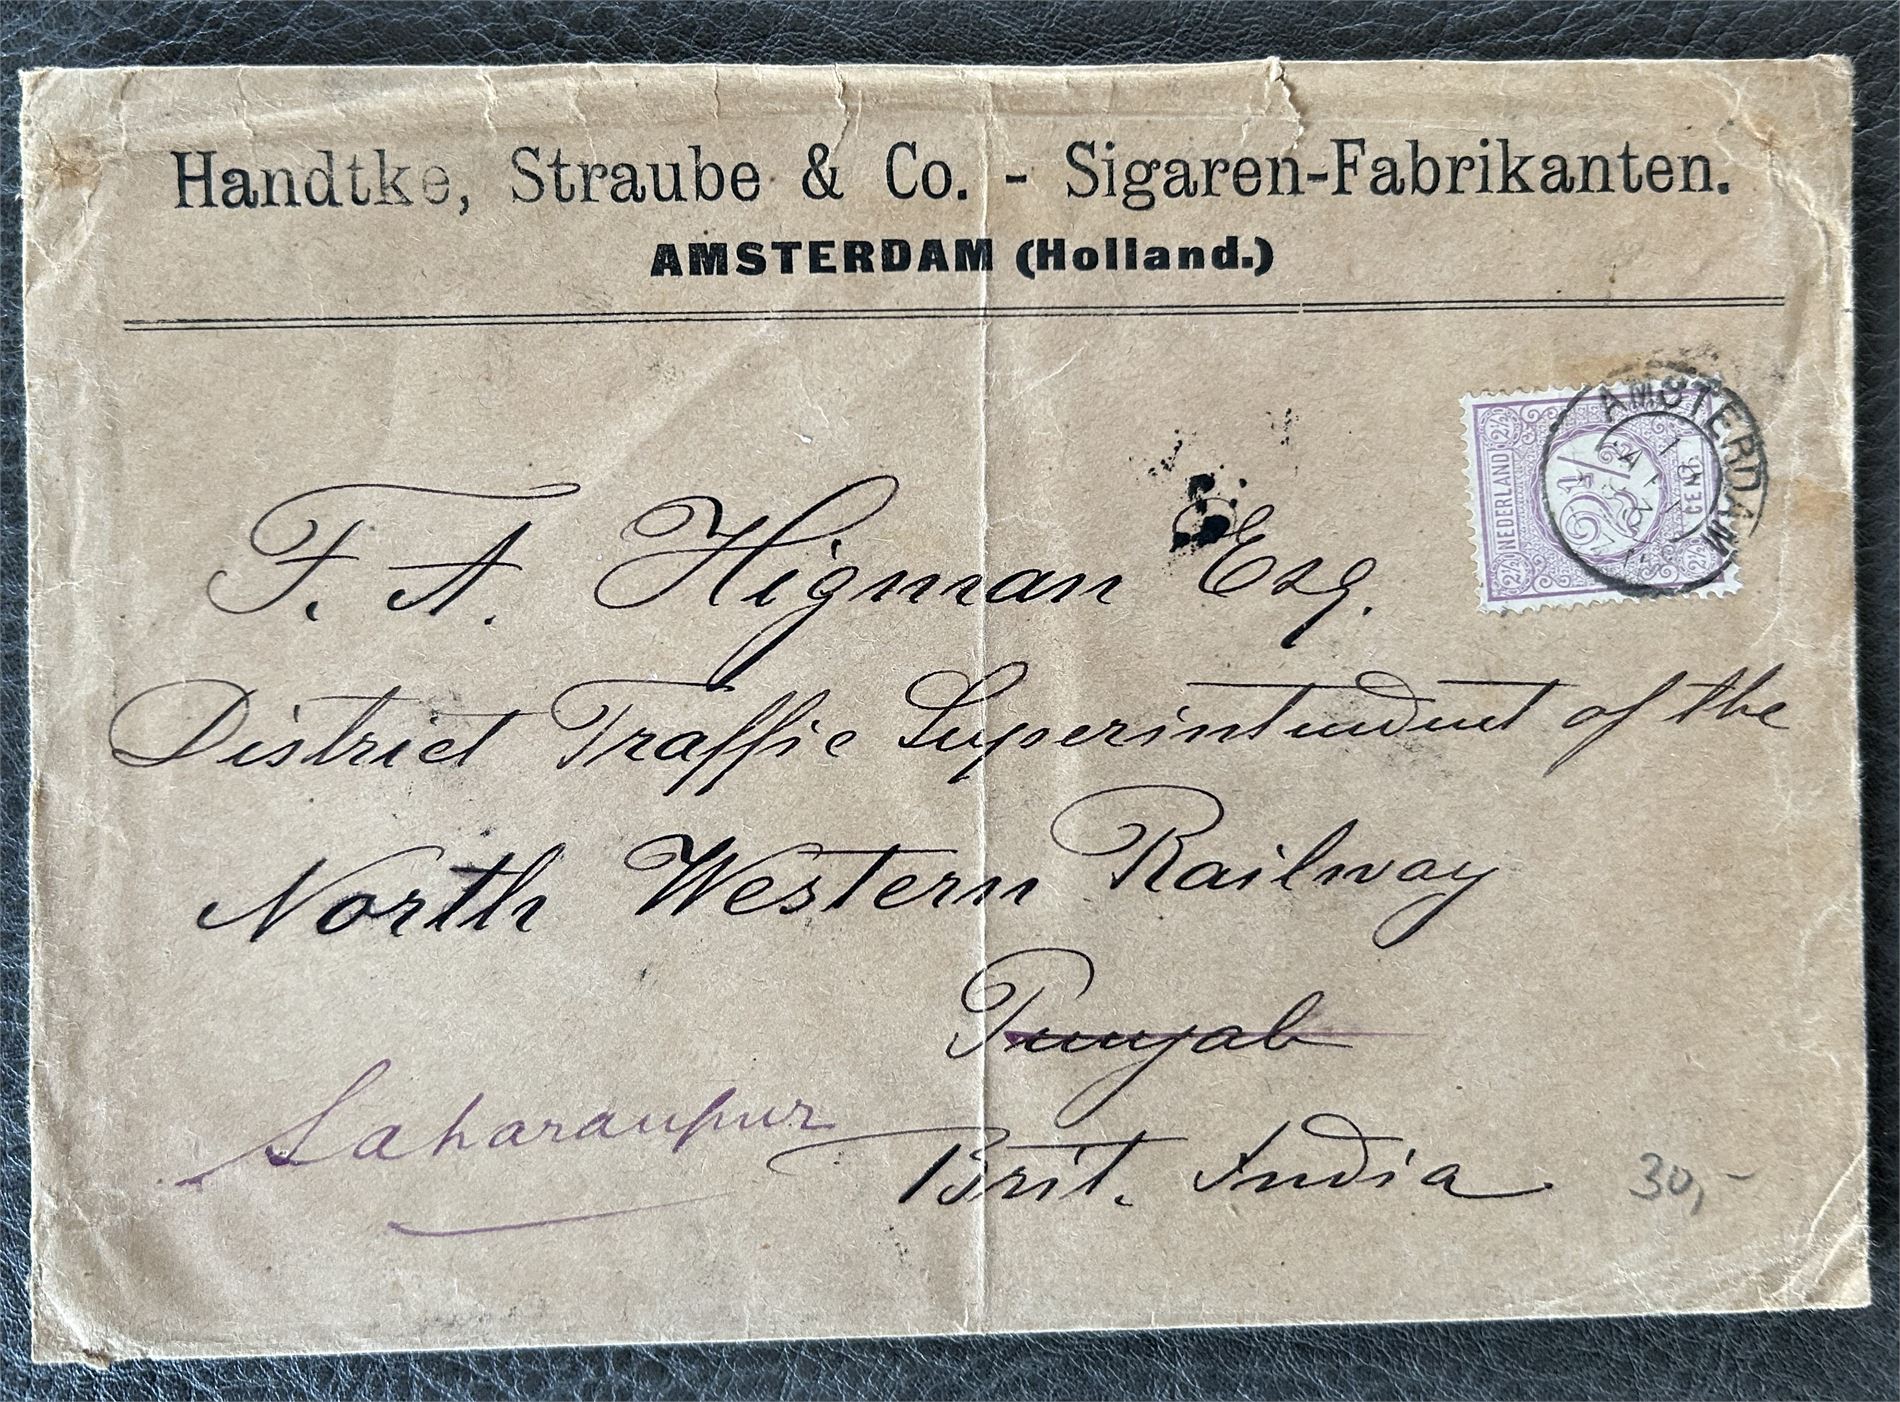 Handtke, Straube & Co. - Sigaren-Fabrikanten.
AMSTERDAM (Holland.)
AMSTERDAM
NEDERLAND
2½
CENT
2½ 2½ 2½ 2½
F. A. Higman Esq.
District Traffic Superintendent of the
North Western Railway
Punjab
Saharaupur
Brit. India
30,-